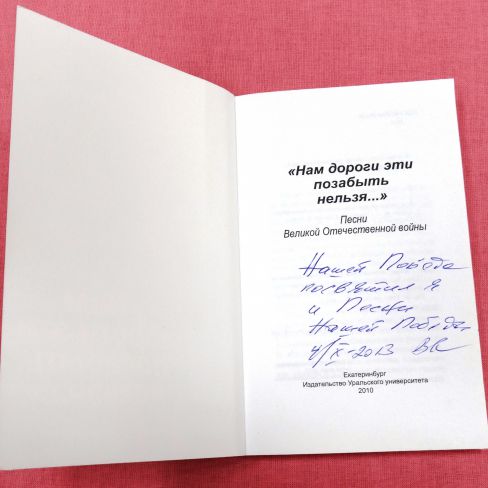 «Нам дороги эти
позабыть
нельзя...»
Песни
Великой Отечественной войны
Нашей Победе
посвятил я
и Песни
Нашей Победы
4/IX-2013
Екатеринбург
Издательство Уральского университета
2010